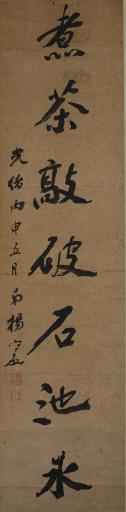 煮茶敲破石池冰
光緒丙申五月 弟楊守敬